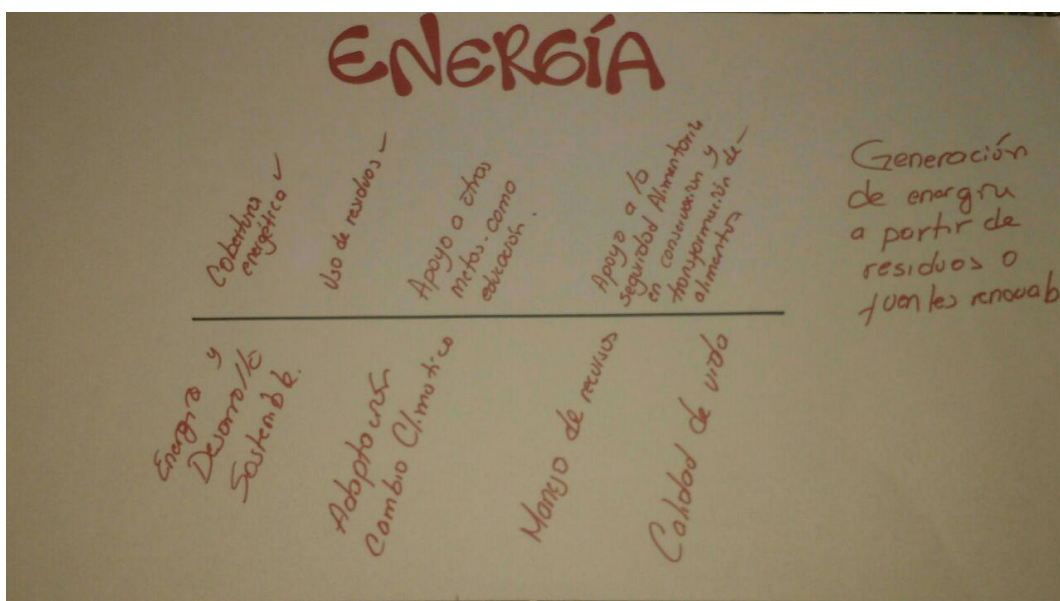 ENERGÍA
Cobertura
energética
Uso de residuos
Apoyo a otras
metas. como
educación.
Apoyo a la
seguridad Alimentaria
en conservación y
transformación de
alimentos
Generación
de energía
a partir de
residuos o
fuentes renovab
Energía y
Desarrollo
Sostenible.
Adaptación
Cambio Climático
Manejo de recursos
Calidad de vida